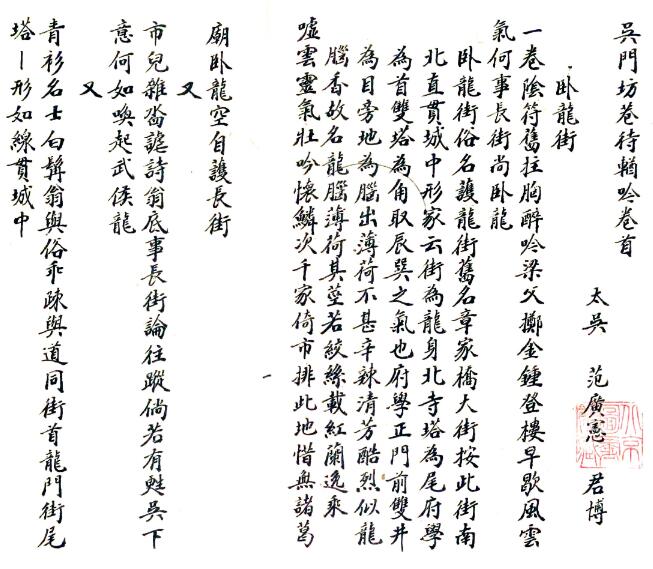 吳門坊巷待輶吟卷首
太吳 范廣憲 君博
臥龍街
一卷陰符舊拄胸醉吟梁父擲金鍾登樓早歇風雲
氣何事長街尚臥龍
臥龍街俗名護龍街舊名章家橋大街按此街南
北直貫城中形家云街為龍身北寺塔為尾府學
為首雙塔為角取辰巽之氣也府學正門前雙井
為目旁地為腦出薄荷不甚辛辣清芳酷烈似龍
腦香故名龍腦薄荷其莖若絞絲載紅蘭逸乘
噓雲靈氣壯吟懷鱗次千家倚市排此地惜無諸葛
廟臥龍空自護長街
又
市兒雜沓謔詩翁底事長街論往蹤倘若有甦吳下
意何如喚起武侯龍
又
青衫名士白髯翁與俗乖疎與道同街首龍門街尾
塔一形如線貫城中